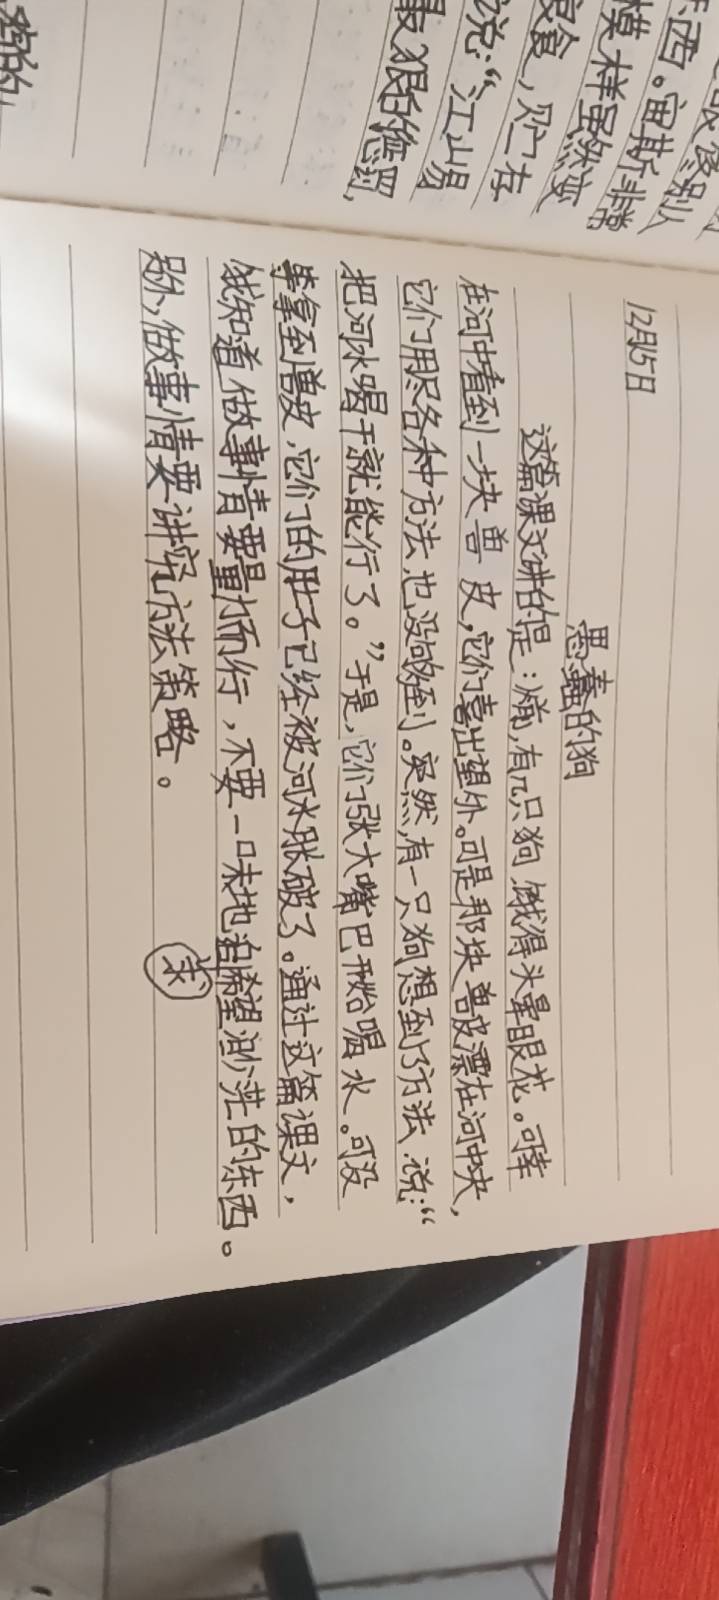 东西。宙斯非常
模样虽然变
说:“江山易
最狠的惩罚,
12月15日
愚蠢的狗
这篇课文讲的是:从前,有几只狗饿得头晕眼花。可幸
在河中看到一块兽皮,它们喜出望外。可是那块兽皮漂在河中央,
它们用尽各种方法,也没够到。突然,有一只狗想到了方法,说:“
把河水喝干就能行了。”于是,它们张大嘴巴开始喝水。可没
等拿到兽皮,它们的肚子已经被河水胀破了。通过这篇课文,
我知道做事情要量力而行,不要一味地追希望渺茫的东西。
求
另外,做事情要讲究方法策略。